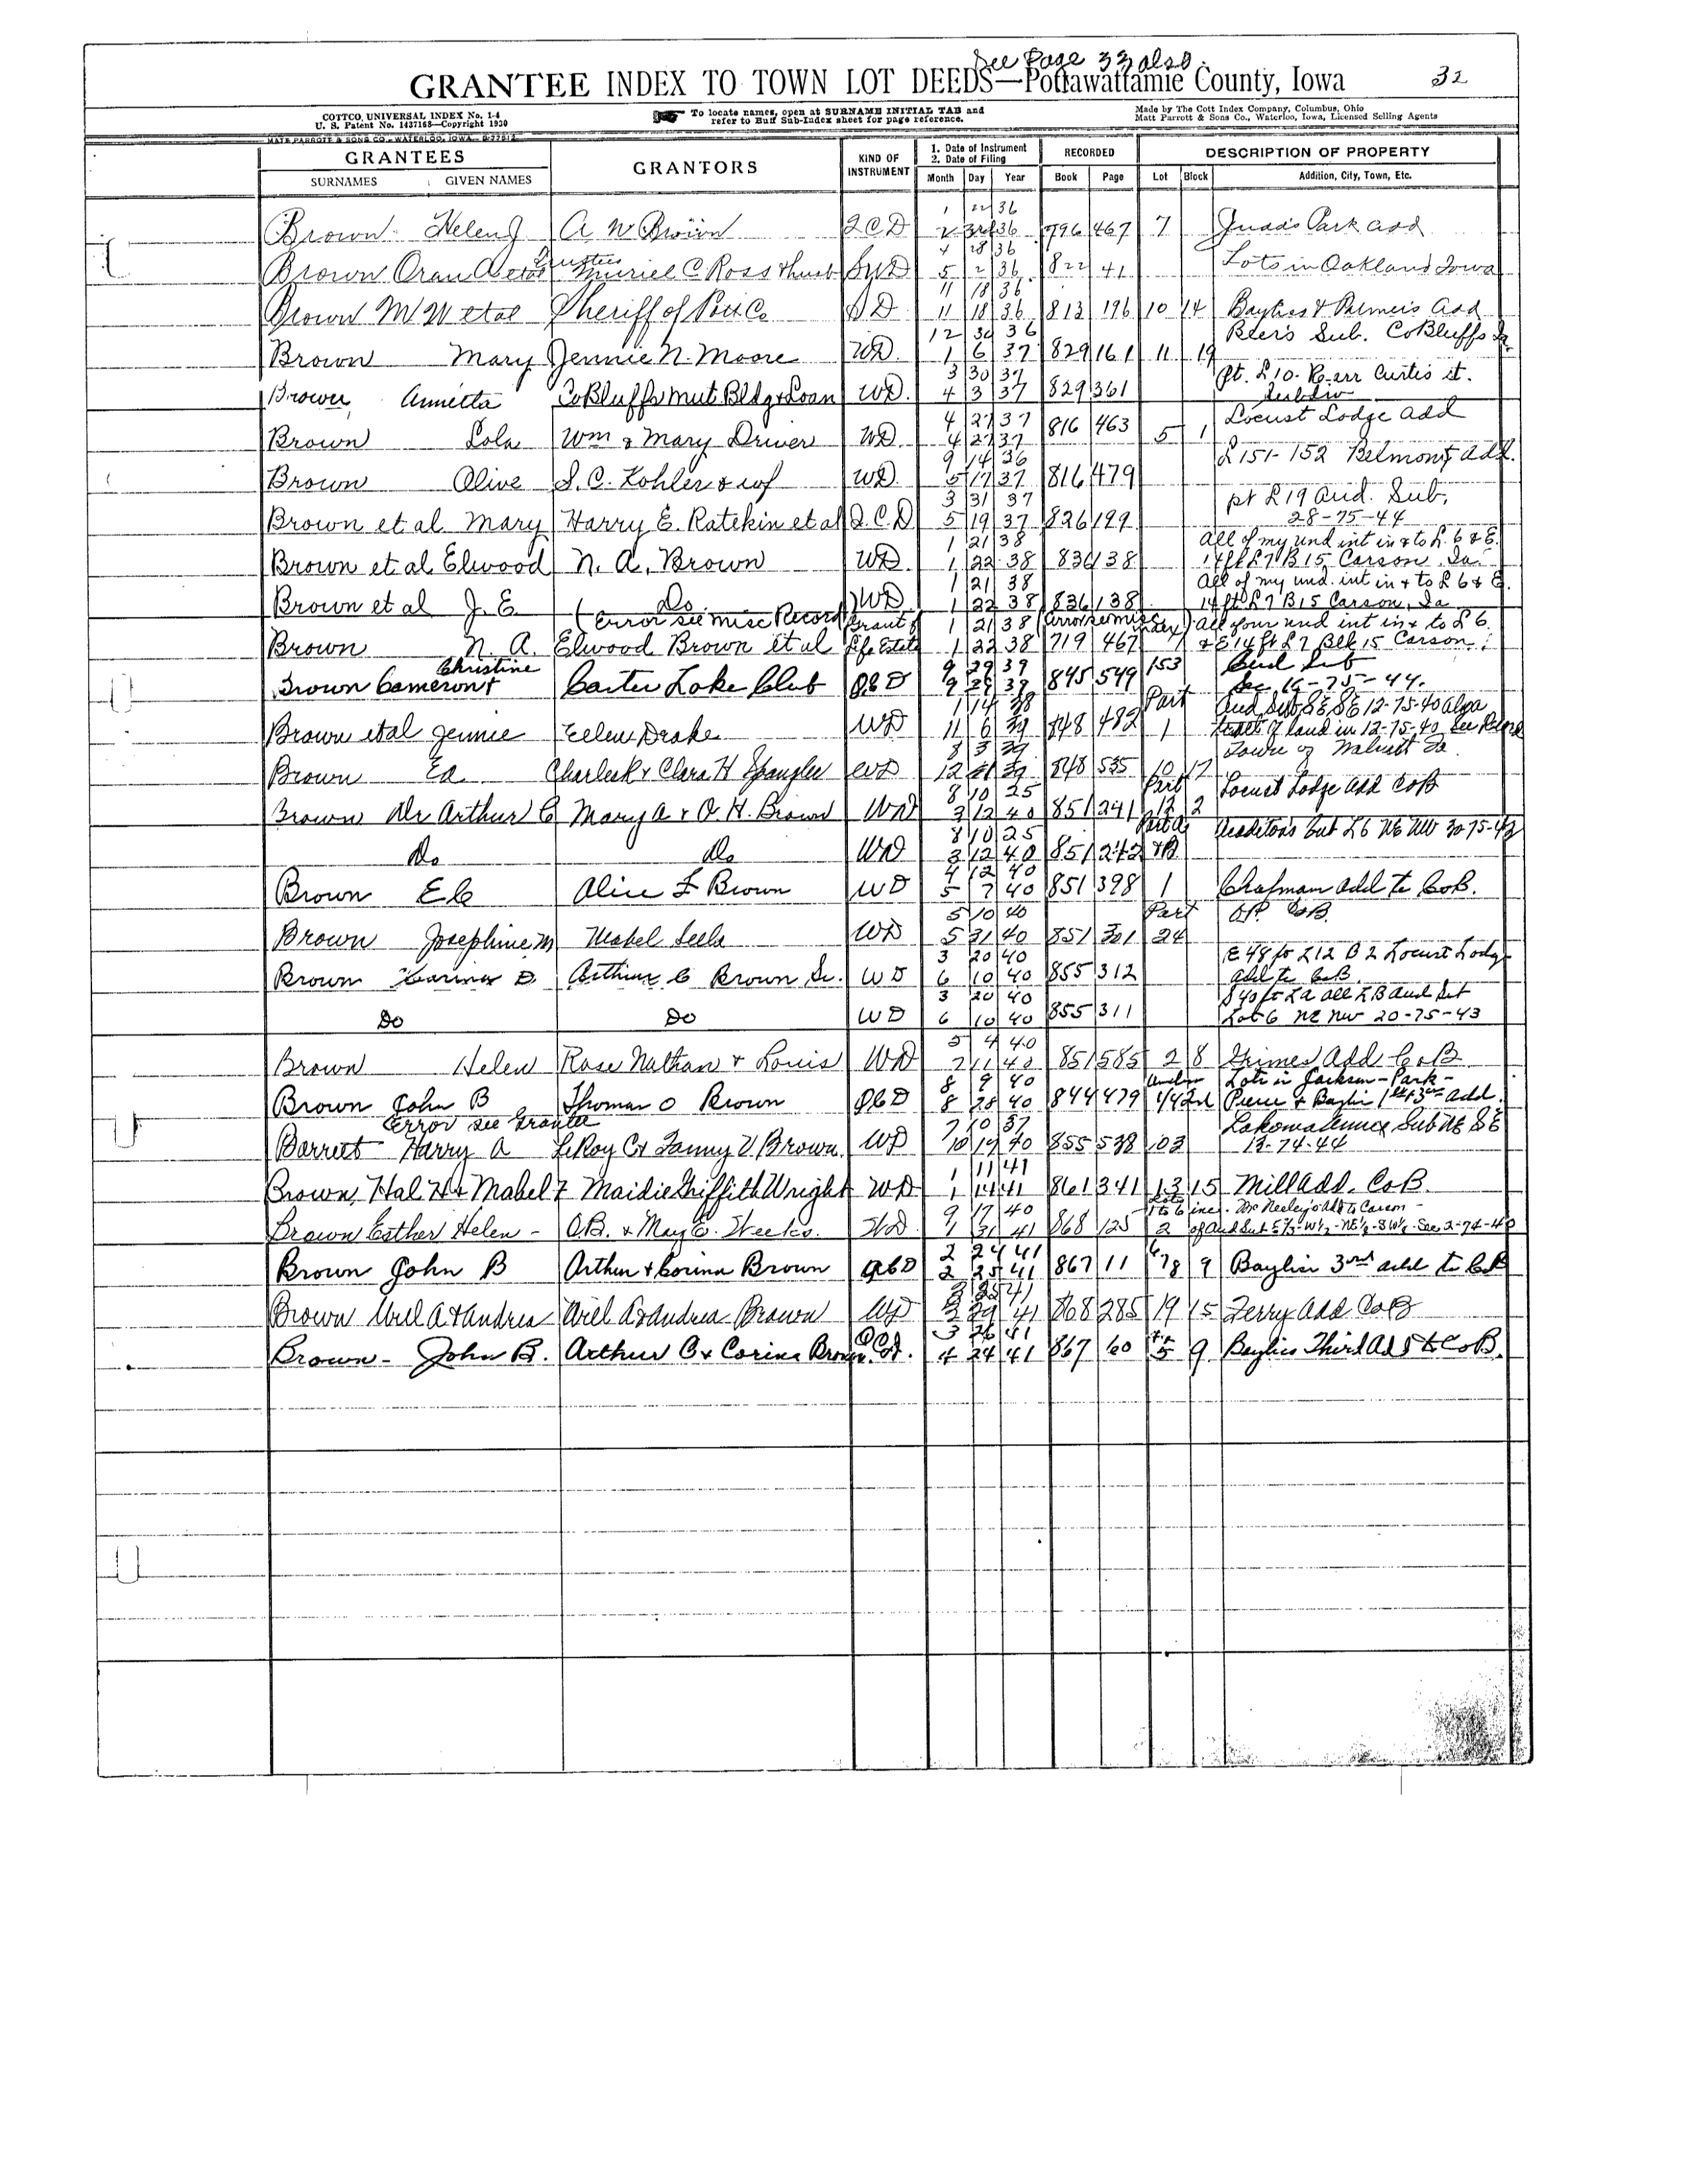 See Page 33 also.
GRANTEE INDEX TO TOWN LOT DEEDS—Pottawattamie County, Iowa 32
COTTCO UNIVERSAL INDEX No. 1-4
U. S. Patent No. 1437168—Copyright 1930
To locate names, open at SURNAME INITIAL TAB and
refer to Buff Sub-Index sheet for page reference.
Made by The Cott Index Company, Columbus, Ohio
Matt Parrott & Sons Co., Waterloo, Iowa, Licensed Selling Agents
MATT PARROTT & SONS CO., WATERLOO, IOWA
GRANTEES GRANTORS KIND OF INSTRUMENT 1. Date of Instrument 2. Date of Filing RECORDED DESCRIPTION OF PROPERTY
SURNAMES GIVEN NAMES Month Day Year Book Page Lot Block Addition, City, Town, Etc.
1 22 36
Brown Helen J A W Brown QCD 2 36 796 467 7 Judd's Park add
4 28 36
Brown Oran A et al Trustees Muriel C Ross & husb SWD 5 2 36 822 41 Lots in Oakland Iowa
11 18 36
Brown M W et al Sheriff of Pott Co SD 11 18 36 813 196 10 14 Bayliss & Palmer's Add
12 30 36 Beer's Sub. Co Bluffs Ia.
Brown Mary Jennie N. Moore WD. 1 6 37 829 161 11 19
3 30 37 pt. L 10. Curtis st.
Brown Annetta Co Bluffs Mut. Bldg & Loan WD. 4 3 37 829 361 Subdiv
4 27 37 Locust Lodge add
Brown Lola Wm & Mary Driver WD. 4 27 37 816 463 5 1
9 14 36 L 151-152 Belmont Add.
Brown Olive S. C. Kohler & wf WD. 5 17 37 816 479
3 31 37 pt L 19 Aud. Sub,
Brown et al Mary Harry E. Ratekin et al Q.C.D 5 19 37 826 199 28-75-44
1 21 38 All of my und int in & to L. 6 & E.
Brown et al Elwood N. A. Brown WD 1 22 38 836 138 14 ft L 7 B 15 Carson Ia.
1 21 38 All of my und. int in & to L 6 & E.
Brown et al J. E. Do WD 1 22 38 836 138 14 ft L 7 B 15 Carson, Ia
(Error see misc Record Grant of 1 21 38 (Error see misc Index) All your und int in & to L 6.
Brown N. A. Elwood Brown et al Life Estate 1 22 38 719 467 & E 14 ft L 7 Blk 15 Carson
Christine 9 29 39 153 Aud Sub
Brown Cameron & Carter Lake Club QCD 9 39 845 549 Sec 16-75-44.
1 14 38 Part Aud Sub SE SE 12-75-40 also
Brown et al Jennie Ellen Drake WD 11 6 39 848 482 1 tract of land in 12-75-40 See Record
8 3 39 Town of Walnut Ia.
Brown Ed. Charles K & Clara H Spangler WD 12 21 39 848 535 10 17
8 10 25 Part Locust Lodge Add CoB
Brown Dr Arthur C Mary A & O. H. Brown WD 3 12 40 851 241 12 2
8 10 25 Part A Auditor's Sub L 6 NE NW 30-75-43
Do Do WD 3 12 40 851 242 & B
4 12 40
Brown E C Alice F Brown WD 5 7 40 851 398 1 Chapman Add to CoB.
5 10 40 Part O.P. CoB.
Brown Josephine M Mabel Seels WD 5 31 40 851 24
3 20 40 E 48 ft L 12 B 2 Locust Lodge
Brown Corinne D. Arthur C Brown Sr. WD 6 10 40 855 312 add to CoB
3 20 40 S 40 ft L A all L B Aud Sub
Do Do WD 6 10 40 855 311 Lot 6 NE NW 20-75-43
5 4 40
Brown Helen Rose Nathan & Louis WD 7 11 40 851 585 2 8 Grimes Add CoB
8 9 40 Lots in Jackson-Park-
Brown John B Thomas O Brown QCD 8 28 40 844 479 1/42nd Pierce & Baylis 1st & 3rd add.
Error see Grantee 7 10 37 Lakoma Annex Sub NE SE
Barrett Harry A LeRoy C & Fanny V Brown. WD 10 19 40 855 538 103 13-74-44
1 11 41
Brown, Hal H & Mabel F Maidie Griffith Wright WD 1 14 41 861 341 13 15 Mill Add. CoB.
9 17 40 Lots 1 to 6 inc. McNeeley's Add to Carson -
Brown Esther Helen - O.B. & May E. Weeks. WD 1 31 41 868 125 2 of Aud Sub E 1/2-W 1/2-NE 1/4-SW 1/4-Sec 2-74-40
2 24 41
Brown John B Arthur & Corina Brown QCD 2 25 41 867 11 78 9 Baylis 3rd add to CB
3 25 41
Brown Uriel A & Andrea Uriel A & Andrea Brown WD 3 29 41 868 285 19 15 Ferry Add CoB
3 26 41
Brown - John B. Arthur C & Corina Brown. QCD. 4 24 41 867 60 5 9 Baylis Third Add to CoB.